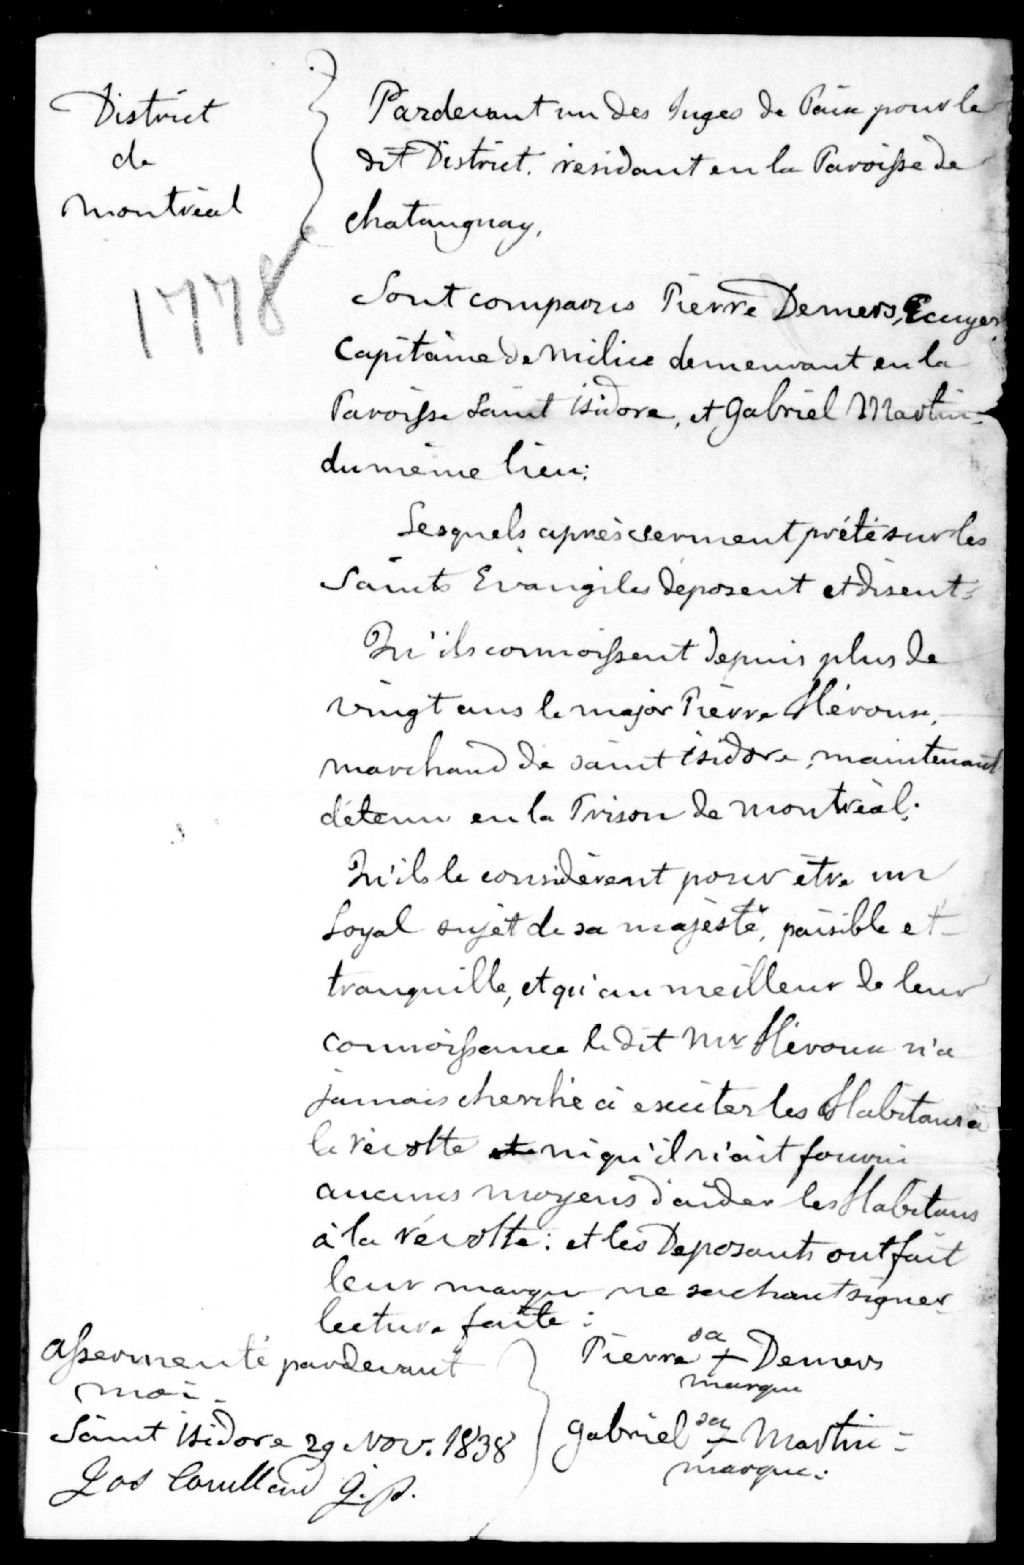 District
de
Montréal
1778
Pardevant un des Juges de Paix pour le
dit District, résidant en la Paroisse de
chataugnay,
Sont comparus Pierre Demers, Ecuyer,
Capitaine de Milice demeurant en la
Paroisse Saint Isidore, et Gabriel Martin
du même lieu;
Lesquels après serment prêté sur les
Saints Evangiles déposent et disent:
Qu'ils connoissent depuis plus de
vingt ans le major Pierre Héroux,
marchand de saint Isidore, maintenant
détenu en la Prison de Montréal;
Qu'ils le considèrent pour être un
Loyal sujèt de sa majesté, paisible et
tranquille, et qu'au meilleur de leur
connoissance le dit Mr Héroux n'a
jamais cherché à exciter les Habitans à
la révolte ni qu'il n'ait fourni
aucuns moyens d'aider les Habitans
à la révolte: et les Deposants ont fait
leur marque ne sachant signer
lecture faite:
Pierre sa + Demers
marque
Gabriel sa + Martin
marque.
Assermenté pardevant
moi
Saint Isidore 29 Nov. 1838
Jos J.P.